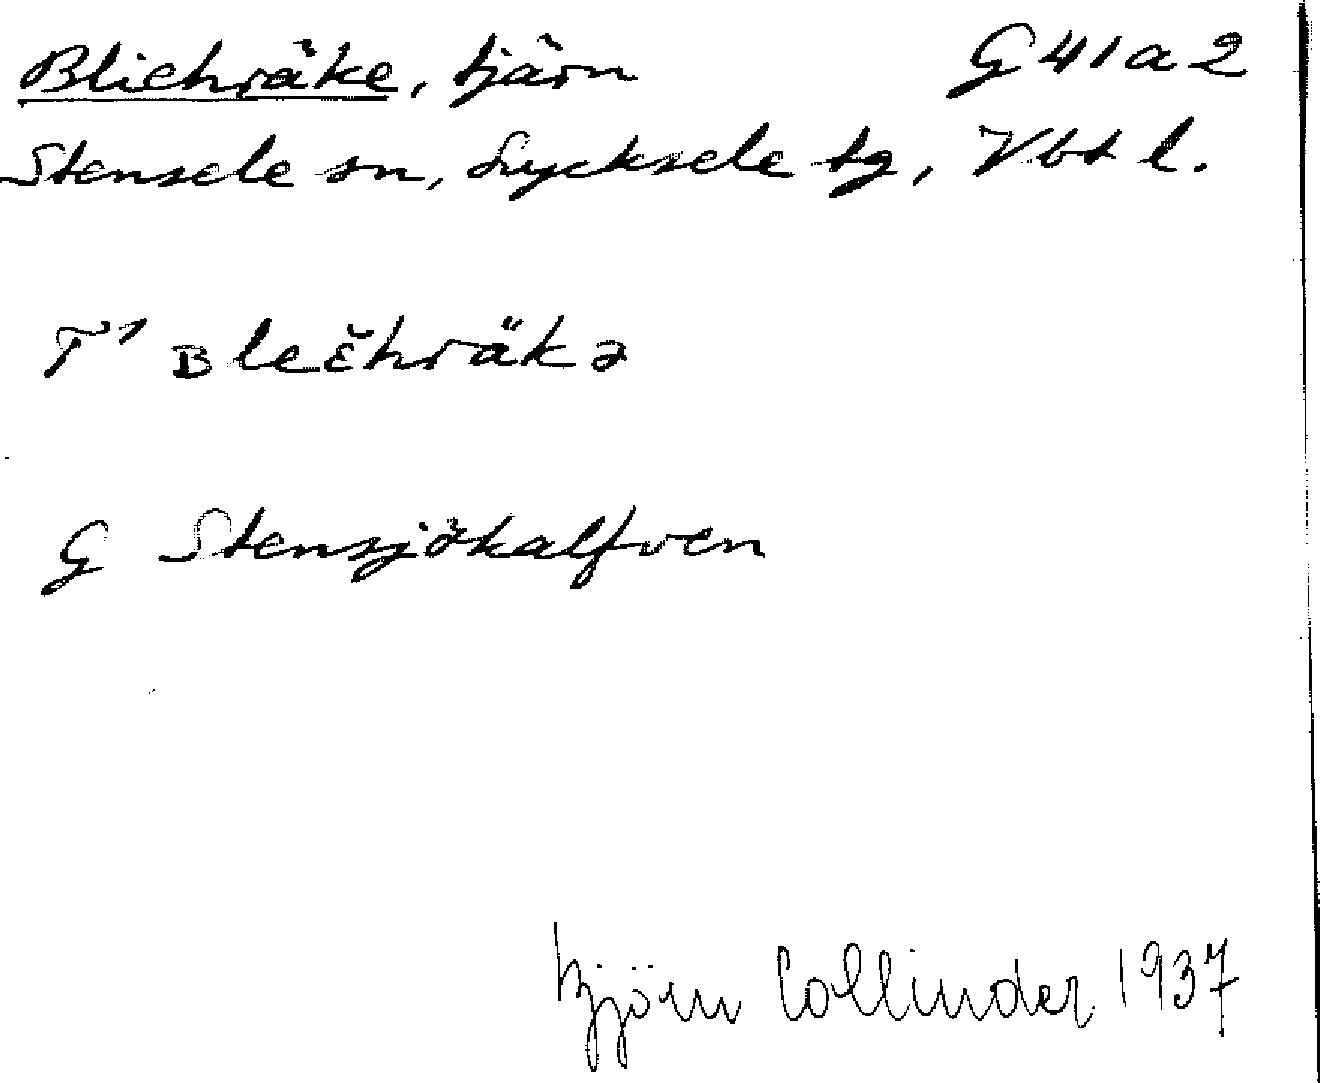 Bliehräke, tjärn G41a2
Stensele sn, Lycksele tg, Vbt l.
T' ʙlečhräkə
G Stensjökalfven
Björn Collinder 1937